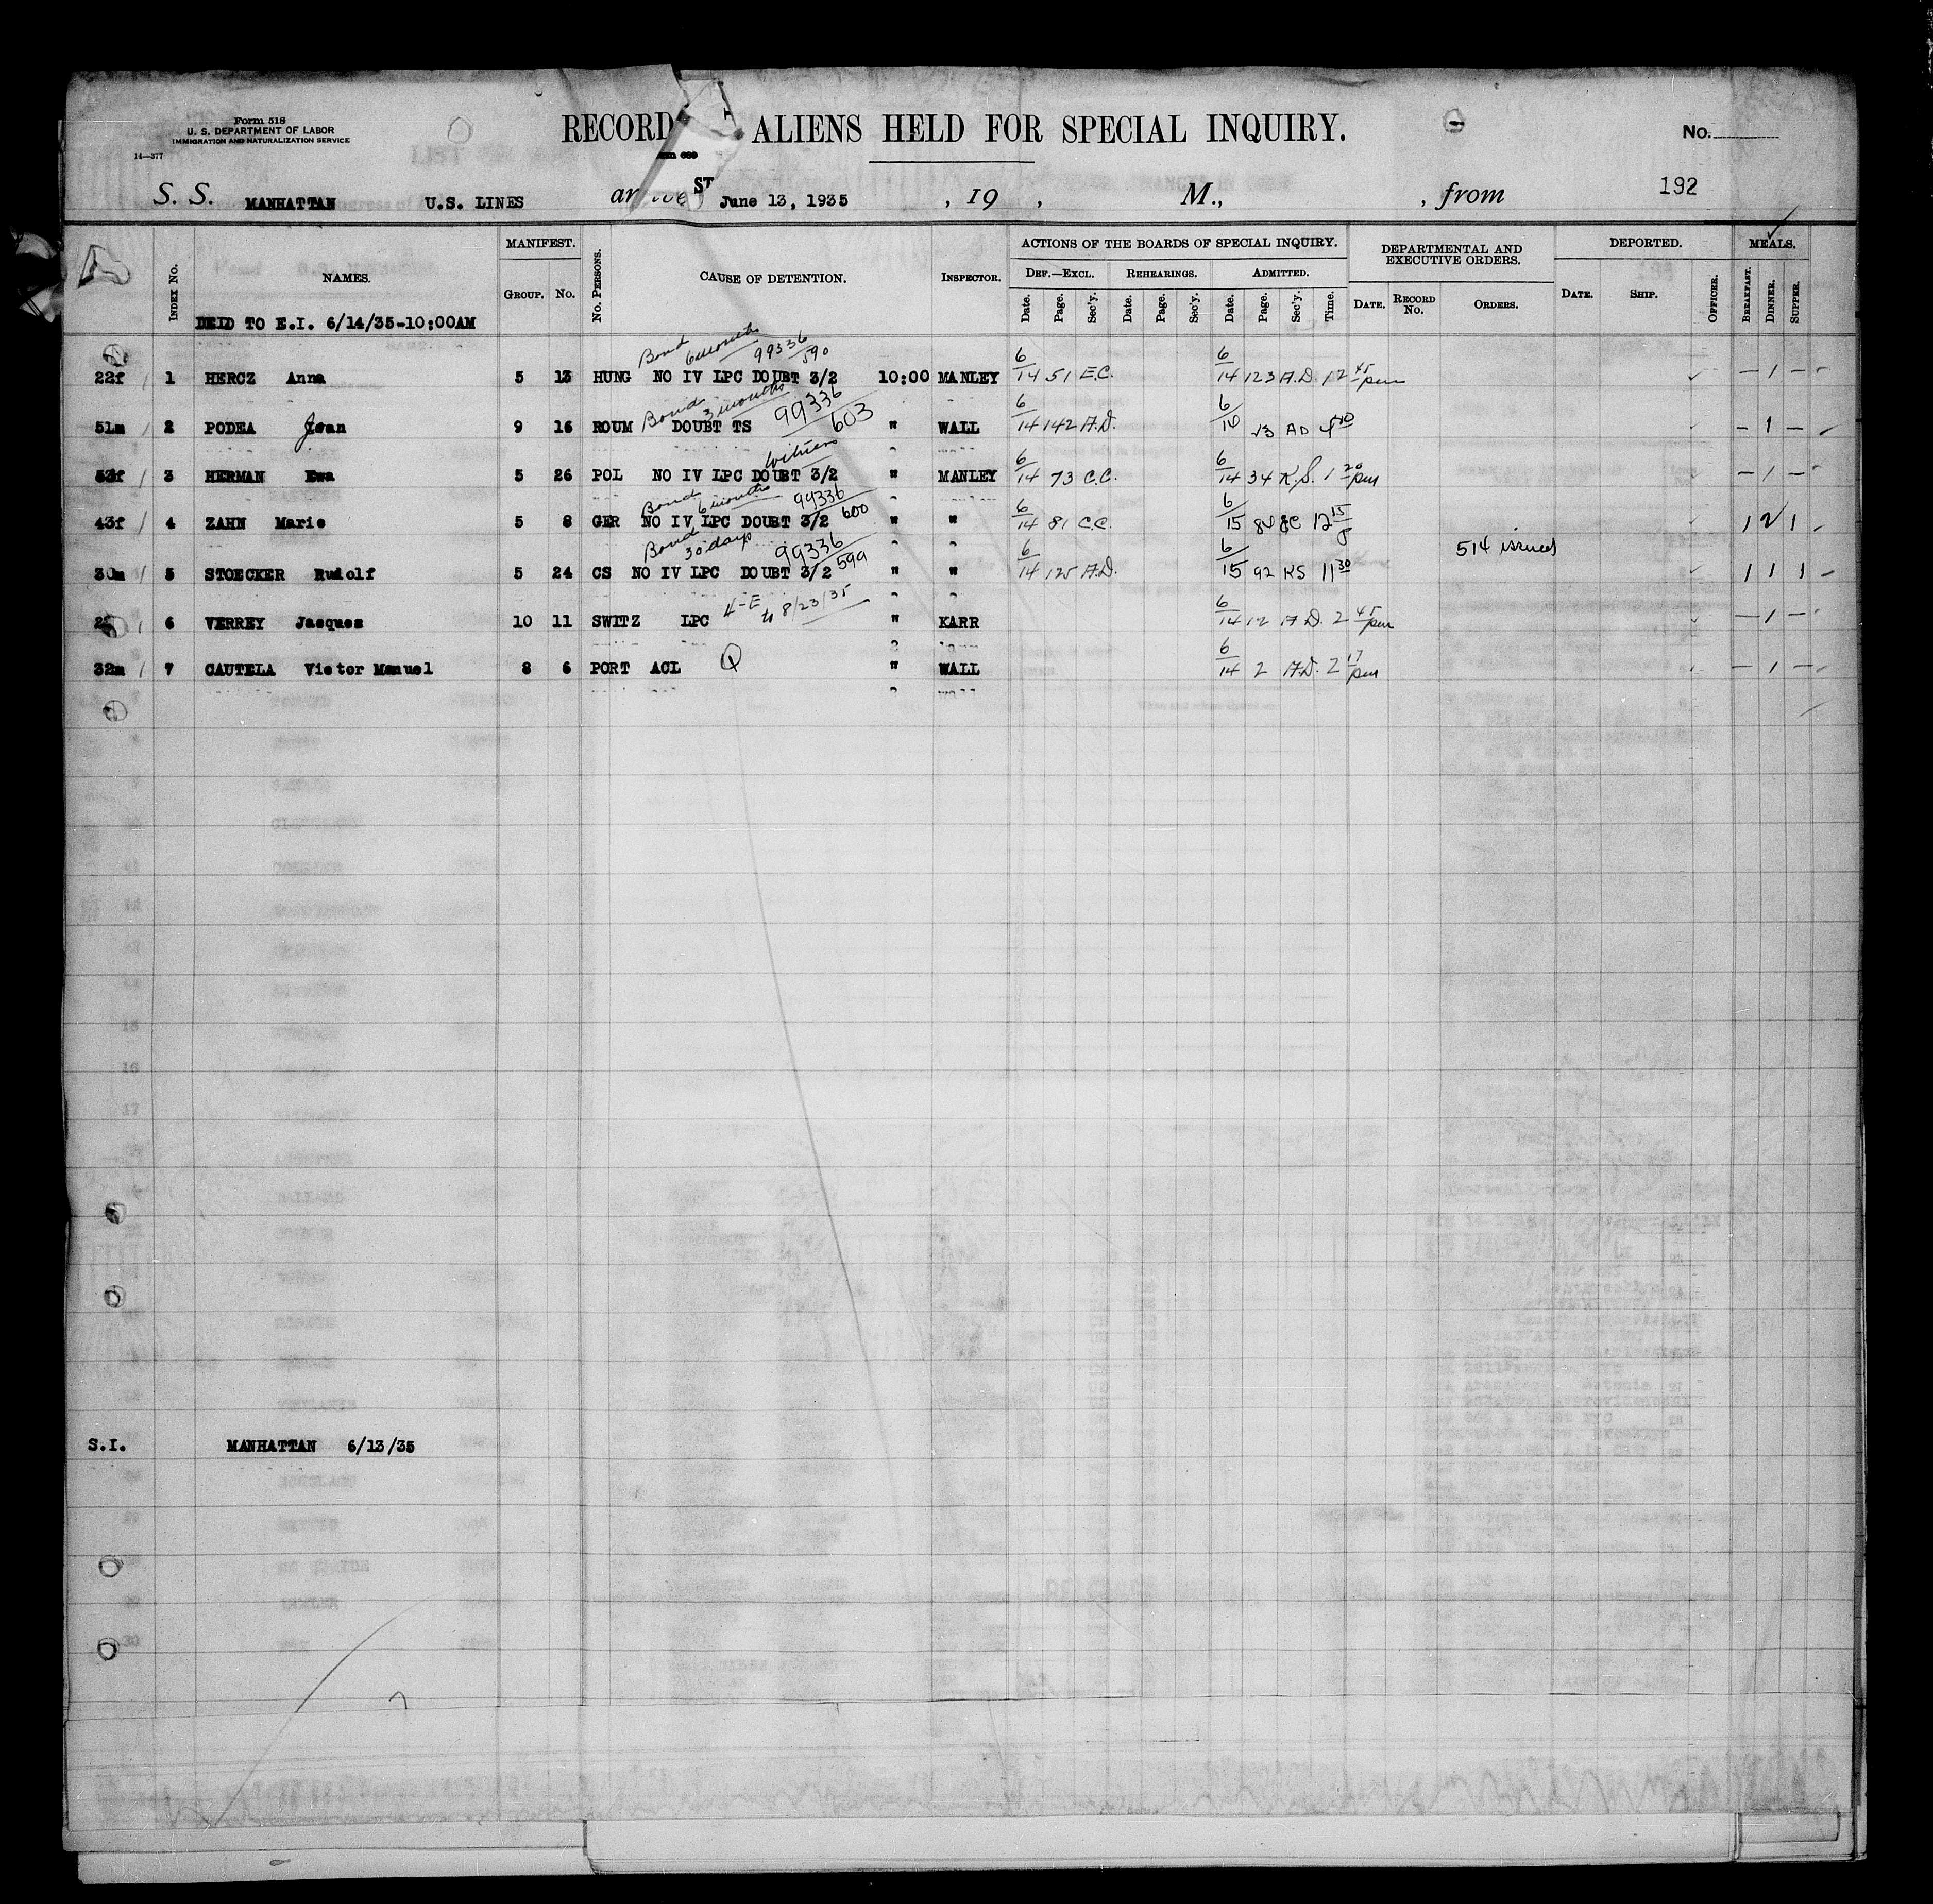 Form 518
U. S. DEPARTMENT OF LABOR
IMMIGRATION AND NATURALIZATION SERVICE
14—377
RECORD ALIENS HELD FOR SPECIAL INQUIRY.
No.
192
S. S. MANHATTAN U.S. LINES June 13, 1935 , 19 , M., , from
INDEX No. NAMES. MANIFEST. GROUP. No. No. PERSONS. CAUSE OF DETENTION. INSPECTOR. ACTIONS OF THE BOARDS OF SPECIAL INQUIRY. DEF.—EXCL. Date. Page. Sec'y. REHEARINGS. Date. Page. Sec'y. ADMITTED. Date. Page. Sec'y. Time. DEPARTMENTAL AND EXECUTIVE ORDERS. DATE. RECORD No. ORDERS. DEPORTED. DATE. SHIP. OFFICER. MEALS. BREAKFAST. DINNER. SUPPER.
DEID TO E.I. 6/14/35-10:00AM
Bond 6 months 99336/590
22f 1 HERCZ Anna 5 13 HUNG NO IV LPC DOUBT 3/2 10:00 MANLEY 6/14 51 E.C. 6/14 123 A.D. 12 45 pm — 1 —
Bond 3 months 99336/603
51m 2 PODEA 9 16 ROUM DOUBT TS " WALL 6/14 142 A.D. 6/14 AD — 1 —
Witness
53f 3 HERMAN Ewa 5 26 POL NO IV LPC DOUBT 3/2 " MANLEY 6/14 73 C.C. 6/14 34 K.S. 1 20 pm — 1 —
Bond 6 months 99336/600
43f 4 ZAHN Marie 5 8 GER NO IV LPC DOUBT 3/2 " " 6/14 81 C.C. 6/15 12 15 1 2 1
Bond 30 days 99336/599
514 issued
30m 5 STOECKER Rudolf 5 24 CS NO IV LPC DOUBT 3/2 " " 6/14 125 A.D. 6/15 92 KS 11 30 1 1 1
6 VERREY Jacques 10 11 SWITZ LPC 8/23/35 " KARR 6/14 12 A.D. 2 45 pm — 1 —
32m 7 CAUTELA Victor Manuel 8 6 PORT ACL " WALL 6/14 2 A.D. 2 17 pm — 1 —
S.I. MANHATTAN 6/13/35